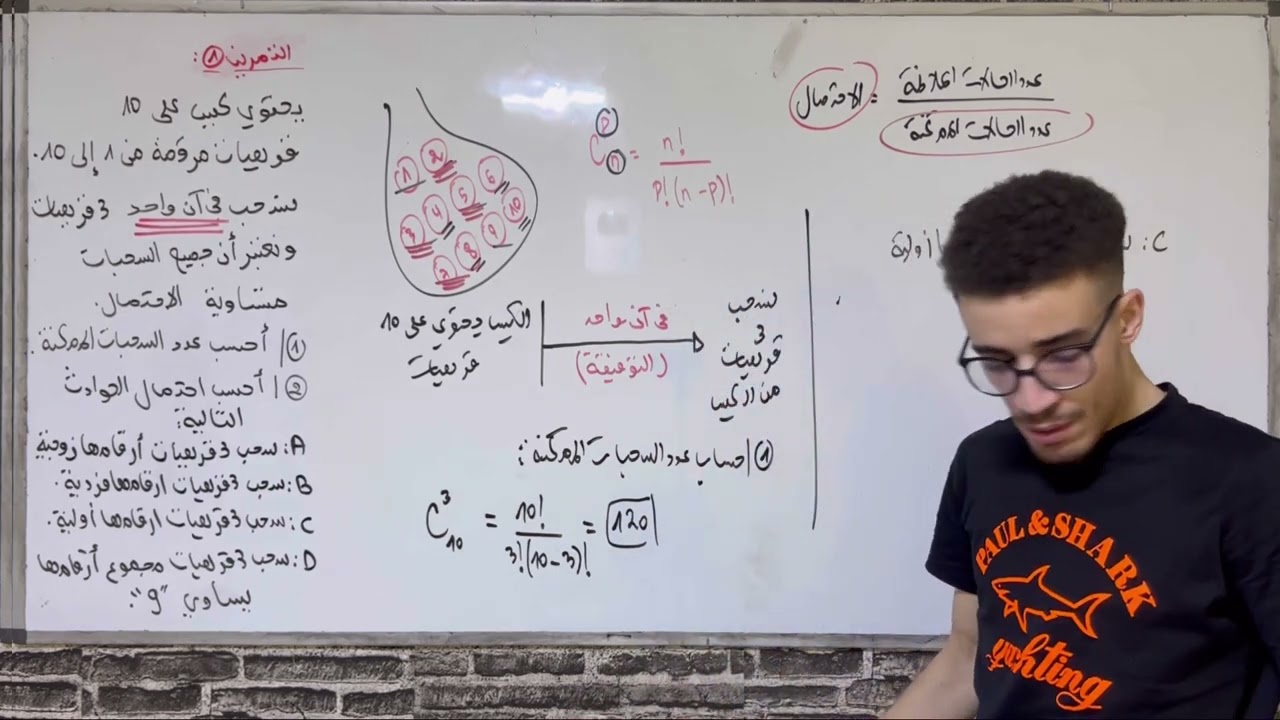 التمرين 1:
يحتوي كيس على 10
قريصات مرقمة من 1 إلى 10.
نسحب في آن واحد 3 قريصات
ونعتبر أن جميع السحبات
متساوية الاحتمال.
1/ أحسب عدد السحبات الممكنة.
2/ أحسب احتمال الحوادث
التالية:
A: سحب 3 قريصات أرقامها زوجية
B: سحب 3 قريصات ارقامها فردية.
C: سحب 3 قريصات ارقامها أولية.
D: سحب 3 قريصات مجموع أرقامها
يساوي "9".
1 2 6
5
3 4 10
8 9
7
C_n^p = n! / p!(n-p)!
الاحتمال = عدد الحالات الملائمة
عدد الحالات الممكنة
الكيس يحتوي على 10
قريصات
في آن واحد
(التوفيقة)
نسحب
3
قريصات
من الكيس
1/ حساب عدد السحبات الممكنة:
C_10^3 = 10! / 3!(10-3)! = 120
C: أولية
PAUL & SHARK
yachting